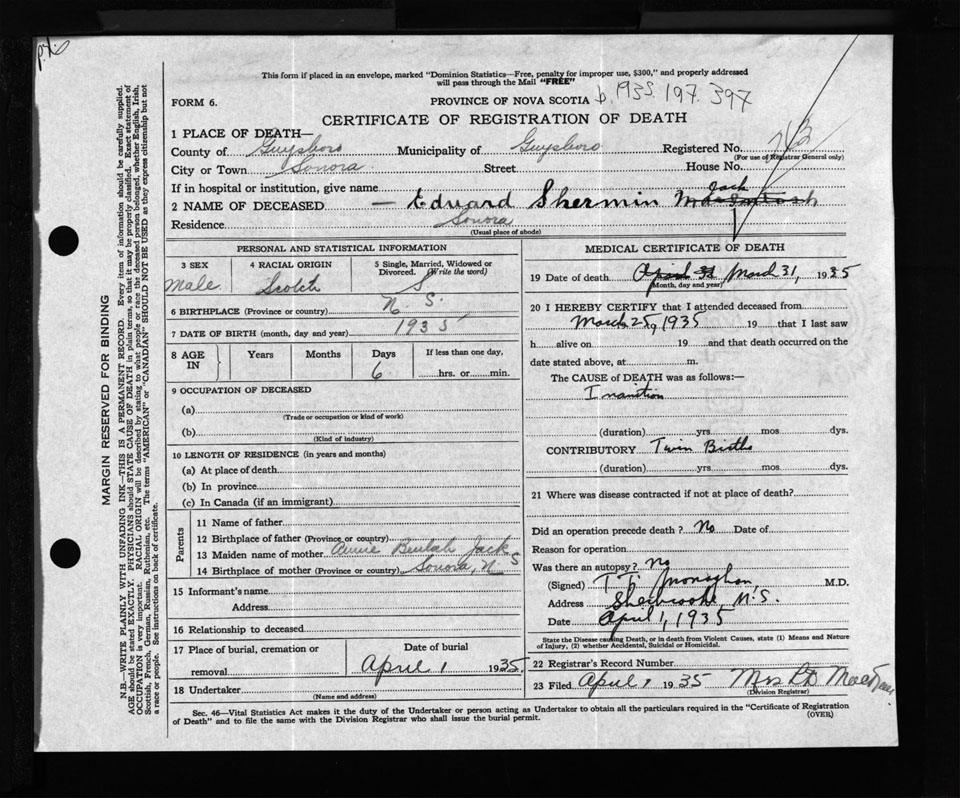 This form if placed in an envelope, marked "Dominion Statistics—Free, penalty for improper use, $300," and properly addressed
will pass through the Mail "FREE"
FORM 6.
PROVINCE OF NOVA SCOTIA 1935. 197. 397
CERTIFICATE OF REGISTRATION OF DEATH
1 PLACE OF DEATH—
County of Guysboro Municipality of Guysboro Registered No.
(For use of Registrar General only)
City or Town Sonora Street House No.
If in hospital or institution, give name
Jack
2 NAME OF DECEASED — Edward Shermin MacIntosh
Residence Sonora
(Usual place of abode)
PERSONAL AND STATISTICAL INFORMATION
3 SEX
Male
4 RACIAL ORIGIN
Scotch
5 Single, Married, Widowed or
Divorced. (Write the word)
S
6 BIRTHPLACE (Province or country) N. S.
7 DATE OF BIRTH (month, day and year) 1935
8 AGE
IN
Years
Months
Days
6
If less than one day,
hrs. or min.
9 OCCUPATION OF DECEASED
(a)
(Trade or occupation or kind of work)
(b)
(Kind of industry)
10 LENGTH OF RESIDENCE (in years and months)
(a) At place of death
(b) In province
(c) In Canada (if an immigrant)
Parents
11 Name of father
12 Birthplace of father (Province or country)
13 Maiden name of mother Annie Beulah Jack
14 Birthplace of mother (Province or country) Sonora, N S
15 Informant's name
Address
16 Relationship to deceased
17 Place of burial, cremation or
removal
Date of burial
April 1 1935
18 Undertaker
(Name and address)
MEDICAL CERTIFICATE OF DEATH
19 Date of death March 31, 1935
(Month, day and year)
20 I HEREBY CERTIFY that I attended deceased from
March 25, 1935 19 that I last saw
h alive on 19 and that death occurred on the
date stated above, at m.
The CAUSE of DEATH was as follows:—
Inanition
(duration) yrs mos dys.
CONTRIBUTORY Twin Birth
(duration) yrs mos dys.
21 Where was disease contracted if not at place of death?
Did an operation precede death? No Date of
Reason for operation
Was there an autopsy? No
(Signed) T. T. Monaghan, M.D.
Address Sherbrooke N.S.
Date April 1, 1935
State the Disease causing Death, or in death from Violent Causes, state (1) Means and Nature
of Injury, (2) whether Accidental, Suicidal or Homicidal.
22 Registrar's Record Number
23 Filed April 1 1935 Mrs
(Division Registrar)
Sec. 46—Vital Statistics Act makes it the duty of the Undertaker or person acting as Undertaker to obtain all the particulars required in the "Certificate of Registration
of Death" and to file the same with the Division Registrar who shall issue the burial permit.
(OVER)
MARGIN RESERVED FOR BINDING
N.B.—WRITE PLAINLY WITH UNFADING INK—THIS IS A PERMANENT RECORD. Every item of information should be carefully supplied.
AGE should be stated EXACTLY. PHYSICIANS should STATE CAUSE OF DEATH in plain terms, so that it may be properly classified. Exact statement of
OCCUPATION is very important. RACIAL ORIGIN will be described by stating to what people or race the deceased person belonged, whether English, Irish,
Scottish, French, German, Russian, Ruthenian, etc. The terms "AMERICAN" or "CANADIAN" SHOULD NOT BE USED as they express citizenship but not
a race or people. See instructions on back of certificate.